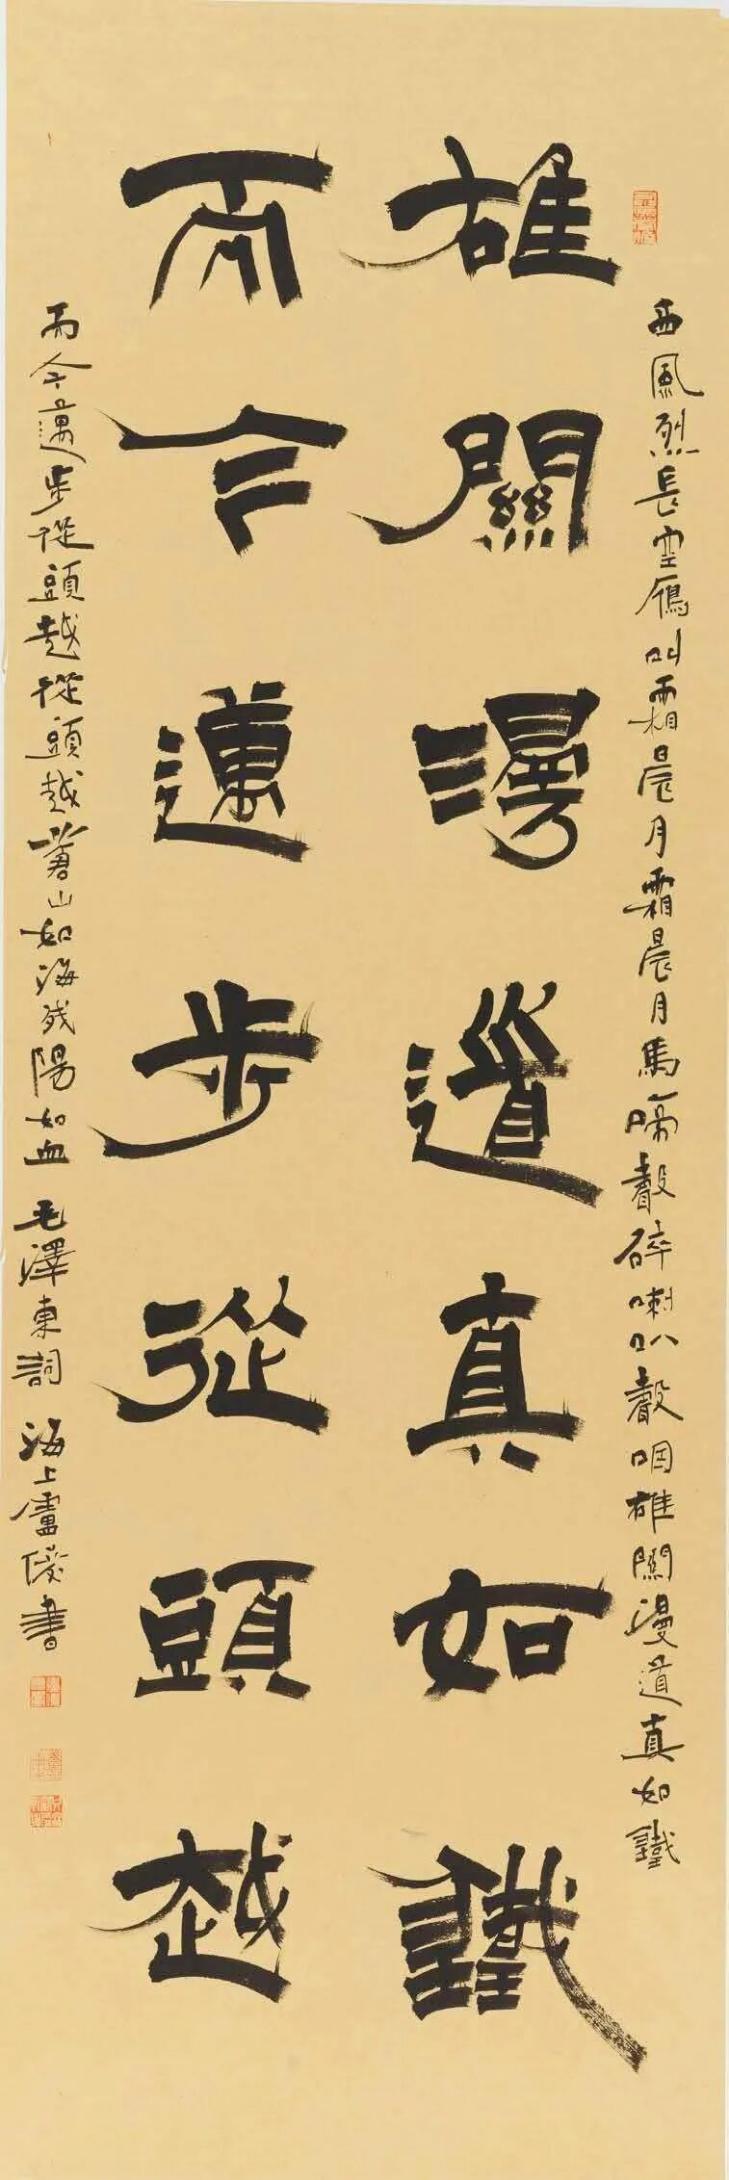 西風烈長空鴈叫霜晨月霜晨月馬蹄聲碎喇叭聲咽雄關漫道真如鐵
雄關漫道真如鐵
而今邁步從頭越
而今邁步從頭越從頭越蒼山如海殘陽如血 毛澤東詞 海上盧俊書